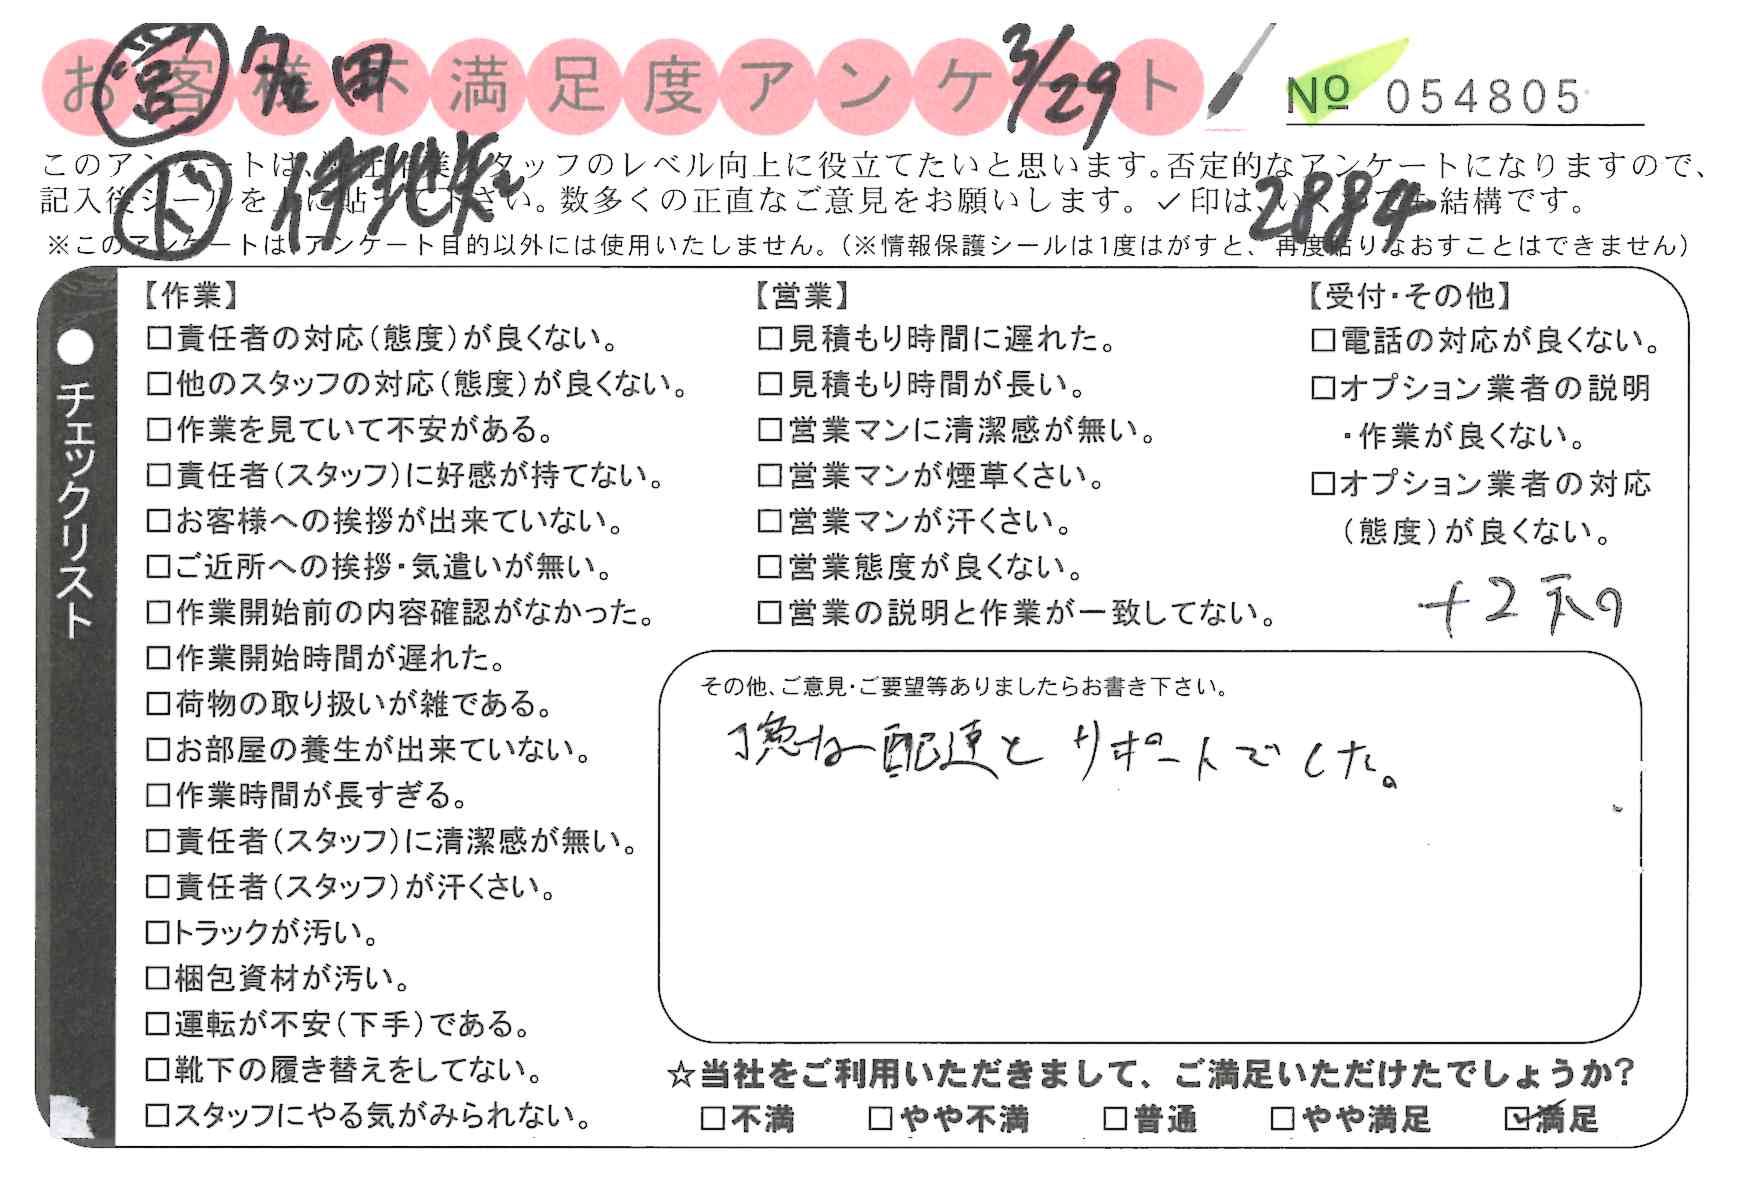 お客様不満足度アンケート
3/29
No 054805
営
ド
このアンケートは、弊社作業スタッフのレベル向上に役立てたいと思います。否定的なアンケートになりますので、
記入後シールを上に貼って下さい。数多くの正直なご意見をお願いします。✓印は、いくつでも結構です。
2884
※このアンケートは、アンケート目的以外には使用いたしません。(※情報保護シールは1度はがすと、再度貼りなおすことはできません)
●チェックリスト
【作業】
□責任者の対応(態度)が良くない。
□他のスタッフの対応(態度)が良くない。
□作業を見ていて不安がある。
□責任者(スタッフ)に好感が持てない。
□お客様への挨拶が出来ていない。
□ご近所への挨拶・気遣いが無い。
□作業開始前の内容確認がなかった。
□作業開始時間が遅れた。
□荷物の取り扱いが雑である。
□お部屋の養生が出来ていない。
□作業時間が長すぎる。
□責任者(スタッフ)に清潔感が無い。
□責任者(スタッフ)が汗くさい。
□トラックが汚い。
□梱包資材が汚い。
□運転が不安(下手)である。
□靴下の履き替えをしてない。
□スタッフにやる気がみられない。
【営業】
□見積もり時間に遅れた。
□見積もり時間が長い。
□営業マンに清潔感が無い。
□営業マンが煙草くさい。
□営業マンが汗くさい。
□営業態度が良くない。
□営業の説明と作業が一致してない。
【受付・その他】
□電話の対応が良くない。
□オプション業者の説明
・作業が良くない。
□オプション業者の対応
(態度)が良くない。
その他、ご意見・ご要望等ありましたらお書き下さい。
配達とサポートでした。
☆当社をご利用いただきまして、ご満足いただけたでしょうか?
□不満 □やや不満 □普通 □やや満足 ☑満足